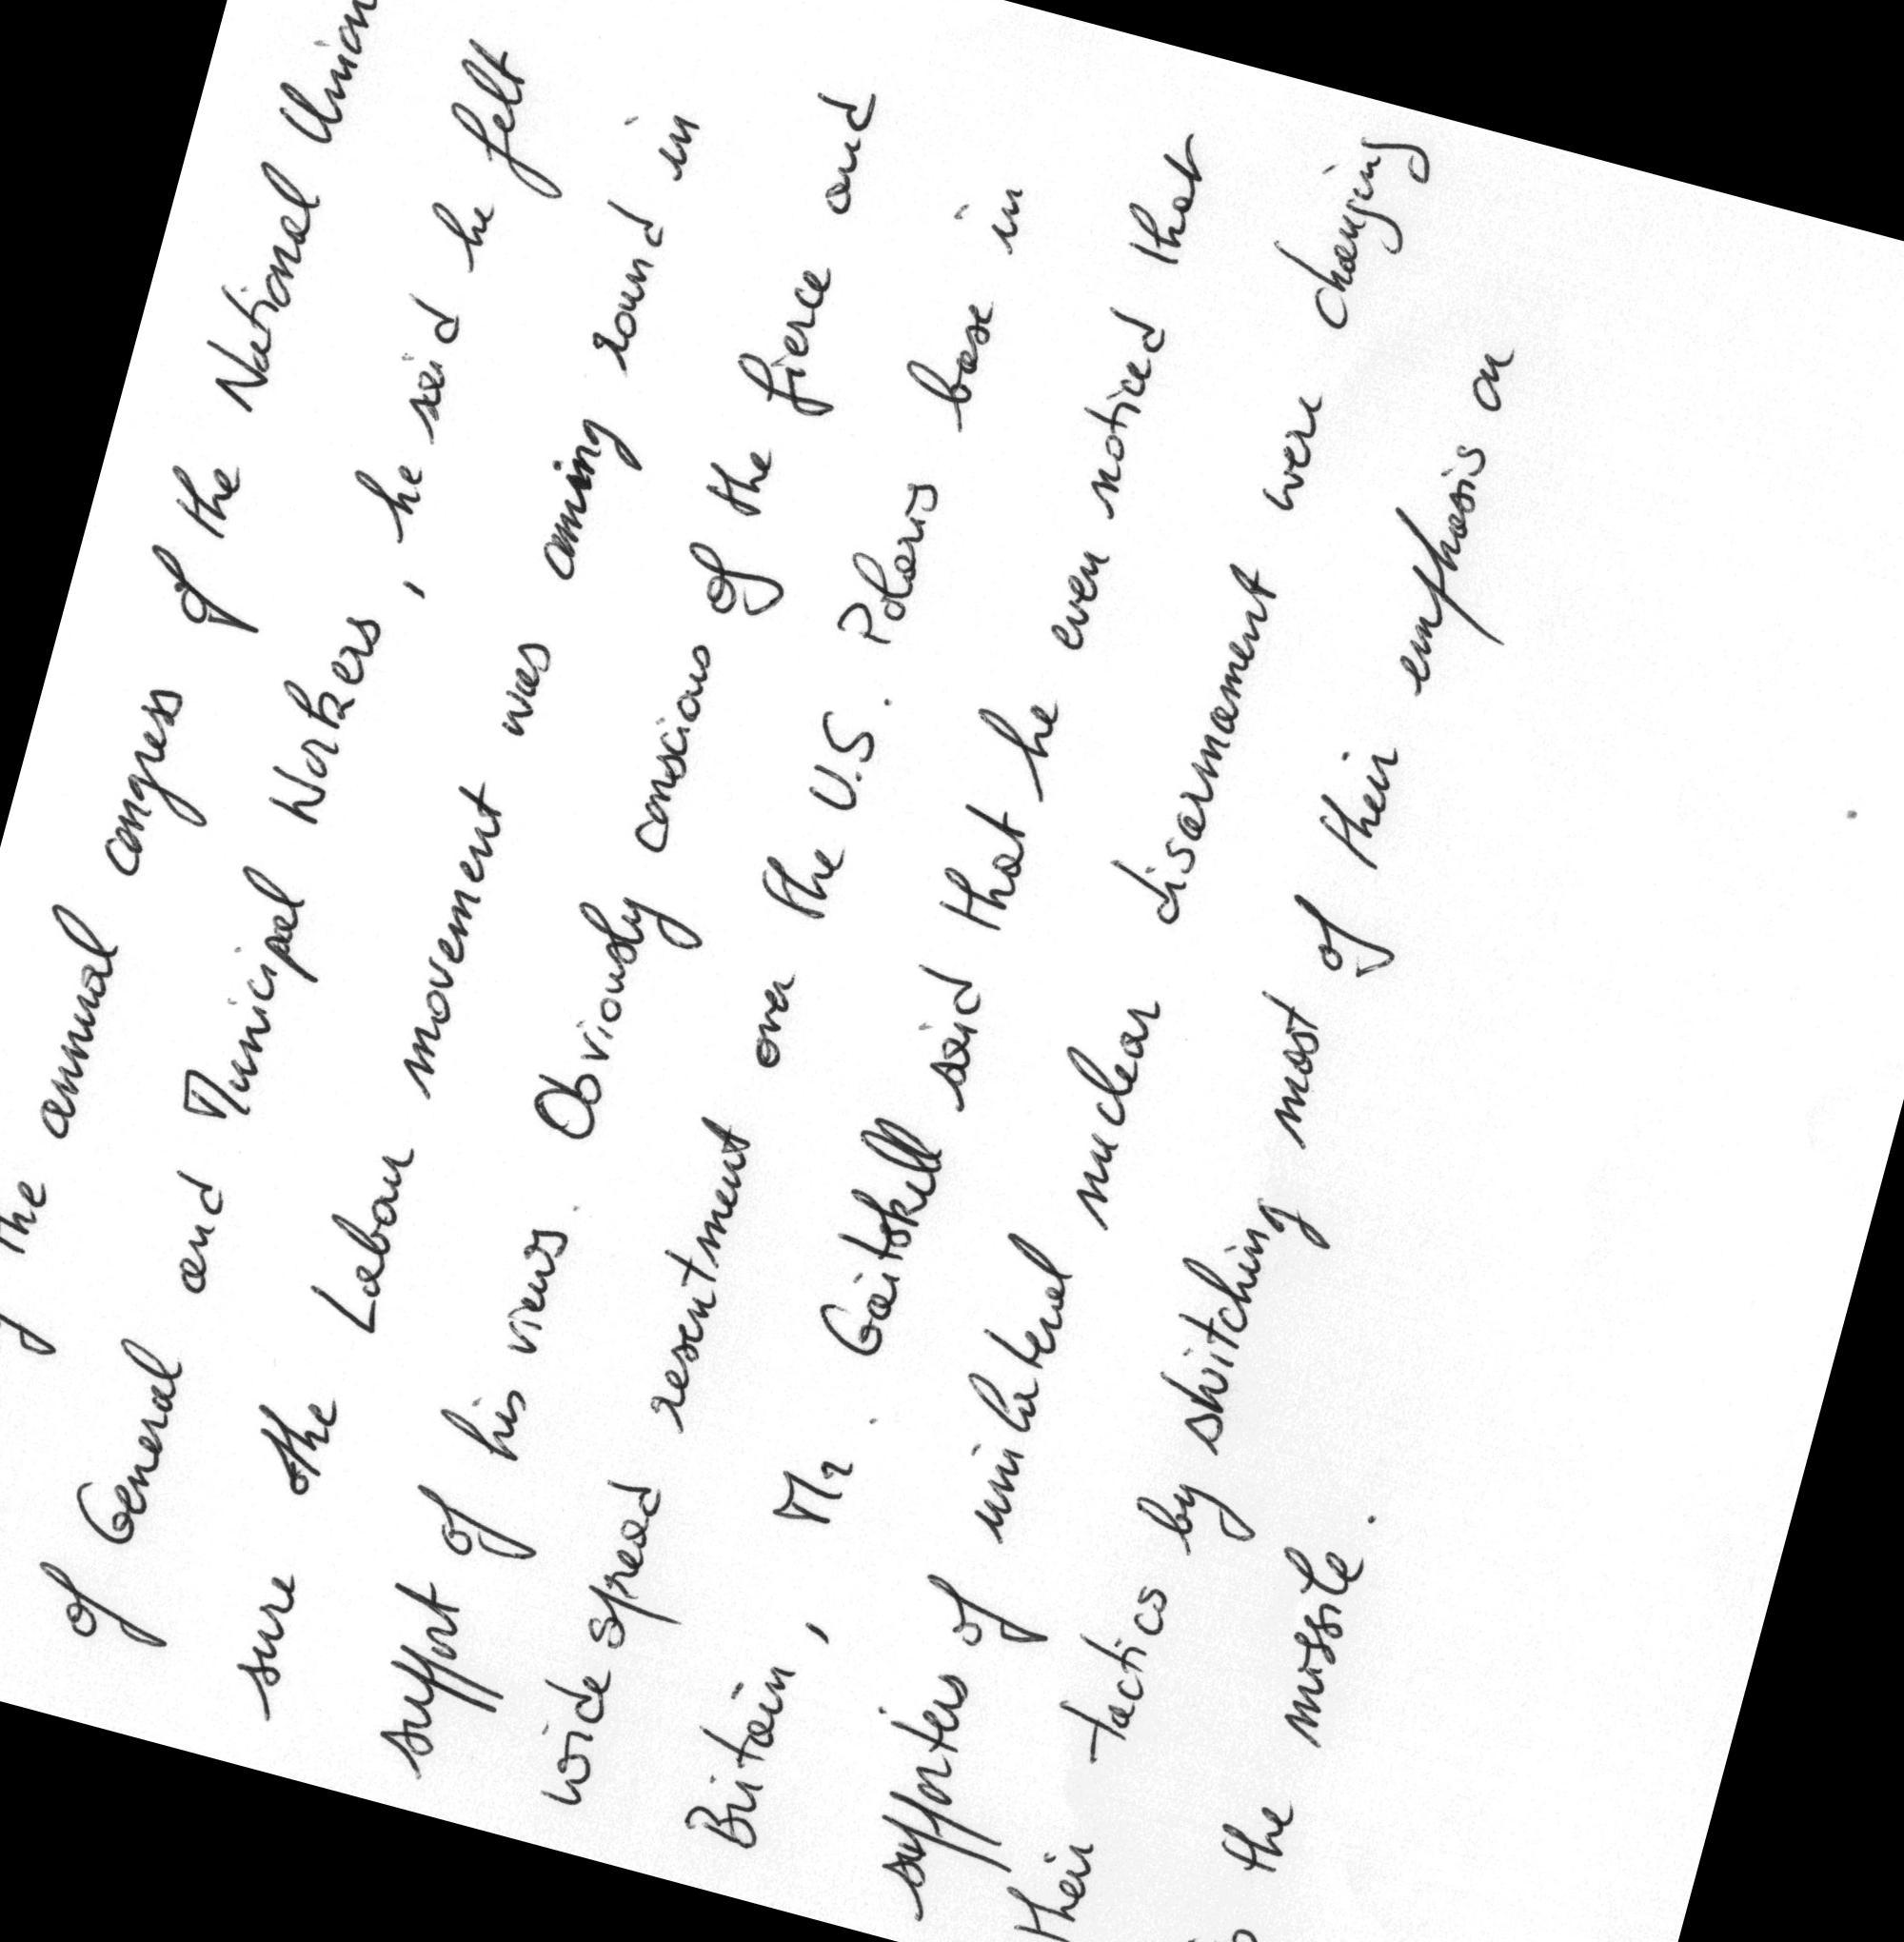 the annual congress of the National Union
of General and Municipal Workers, he said he felt
sure the Labour movement was coming round in
support of his views. Obviously conscious of the fierce and
wide spread resentment over the U.S. Polaris base in
Britain, Mr. Gaitskell said that he even noticed that
supporters of unilateral nuclear disarmament were changing
their tactics by switching most of their emphasis on
the missile.